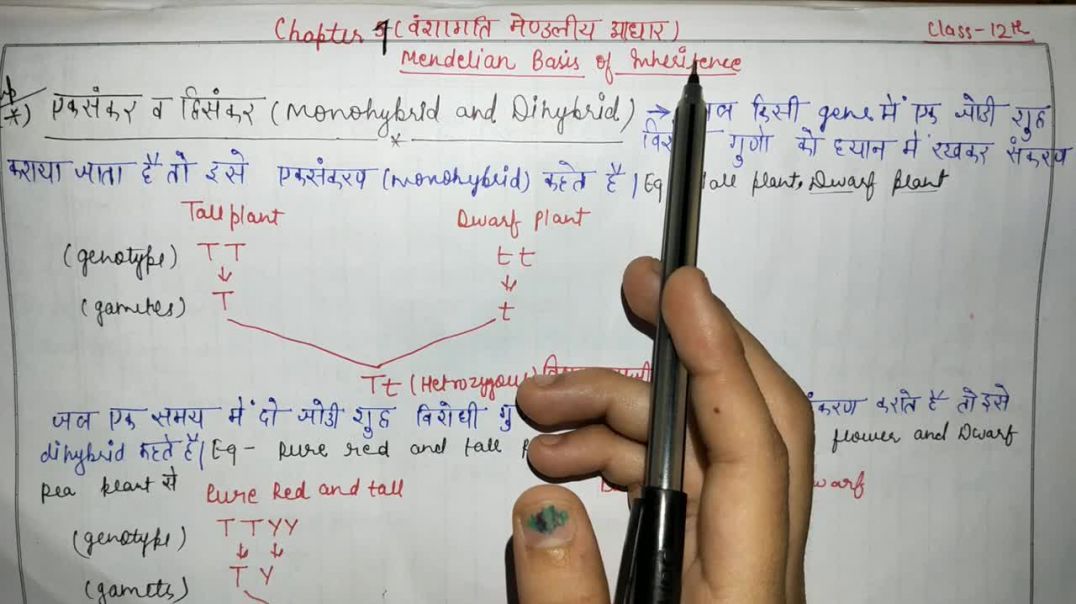 Chapter 4 (वंशागति मेण्डलीय आधार)
Class-12th
Mendelian Basis of Inheritence
एकसंकर व द्विसंकर (Monohybrid and Dihybrid) → जब किसी gene में एक जोडी शुद्ध
गुणो को ध्यान में रखकर संकरण
कराया जाता है तो इसे एकसंकरण (Monohybrid) कहते है | Eq Tall plant, Dwarf plant
Tall plant Dwarf plant
(genotype) TT tt
↓ ↓
(gamites) T t
Tt (Hetrozygous)
जब एक समय में दो जोडी शुद्ध विरोधी करण कराते है तो इसे
dihybrid कहते है | Eq - pure red and tall flower and Dwarf
pea plant से Pure Red and tall warf
(genotype) TTYY
↓ ↓
(gamets) T Y